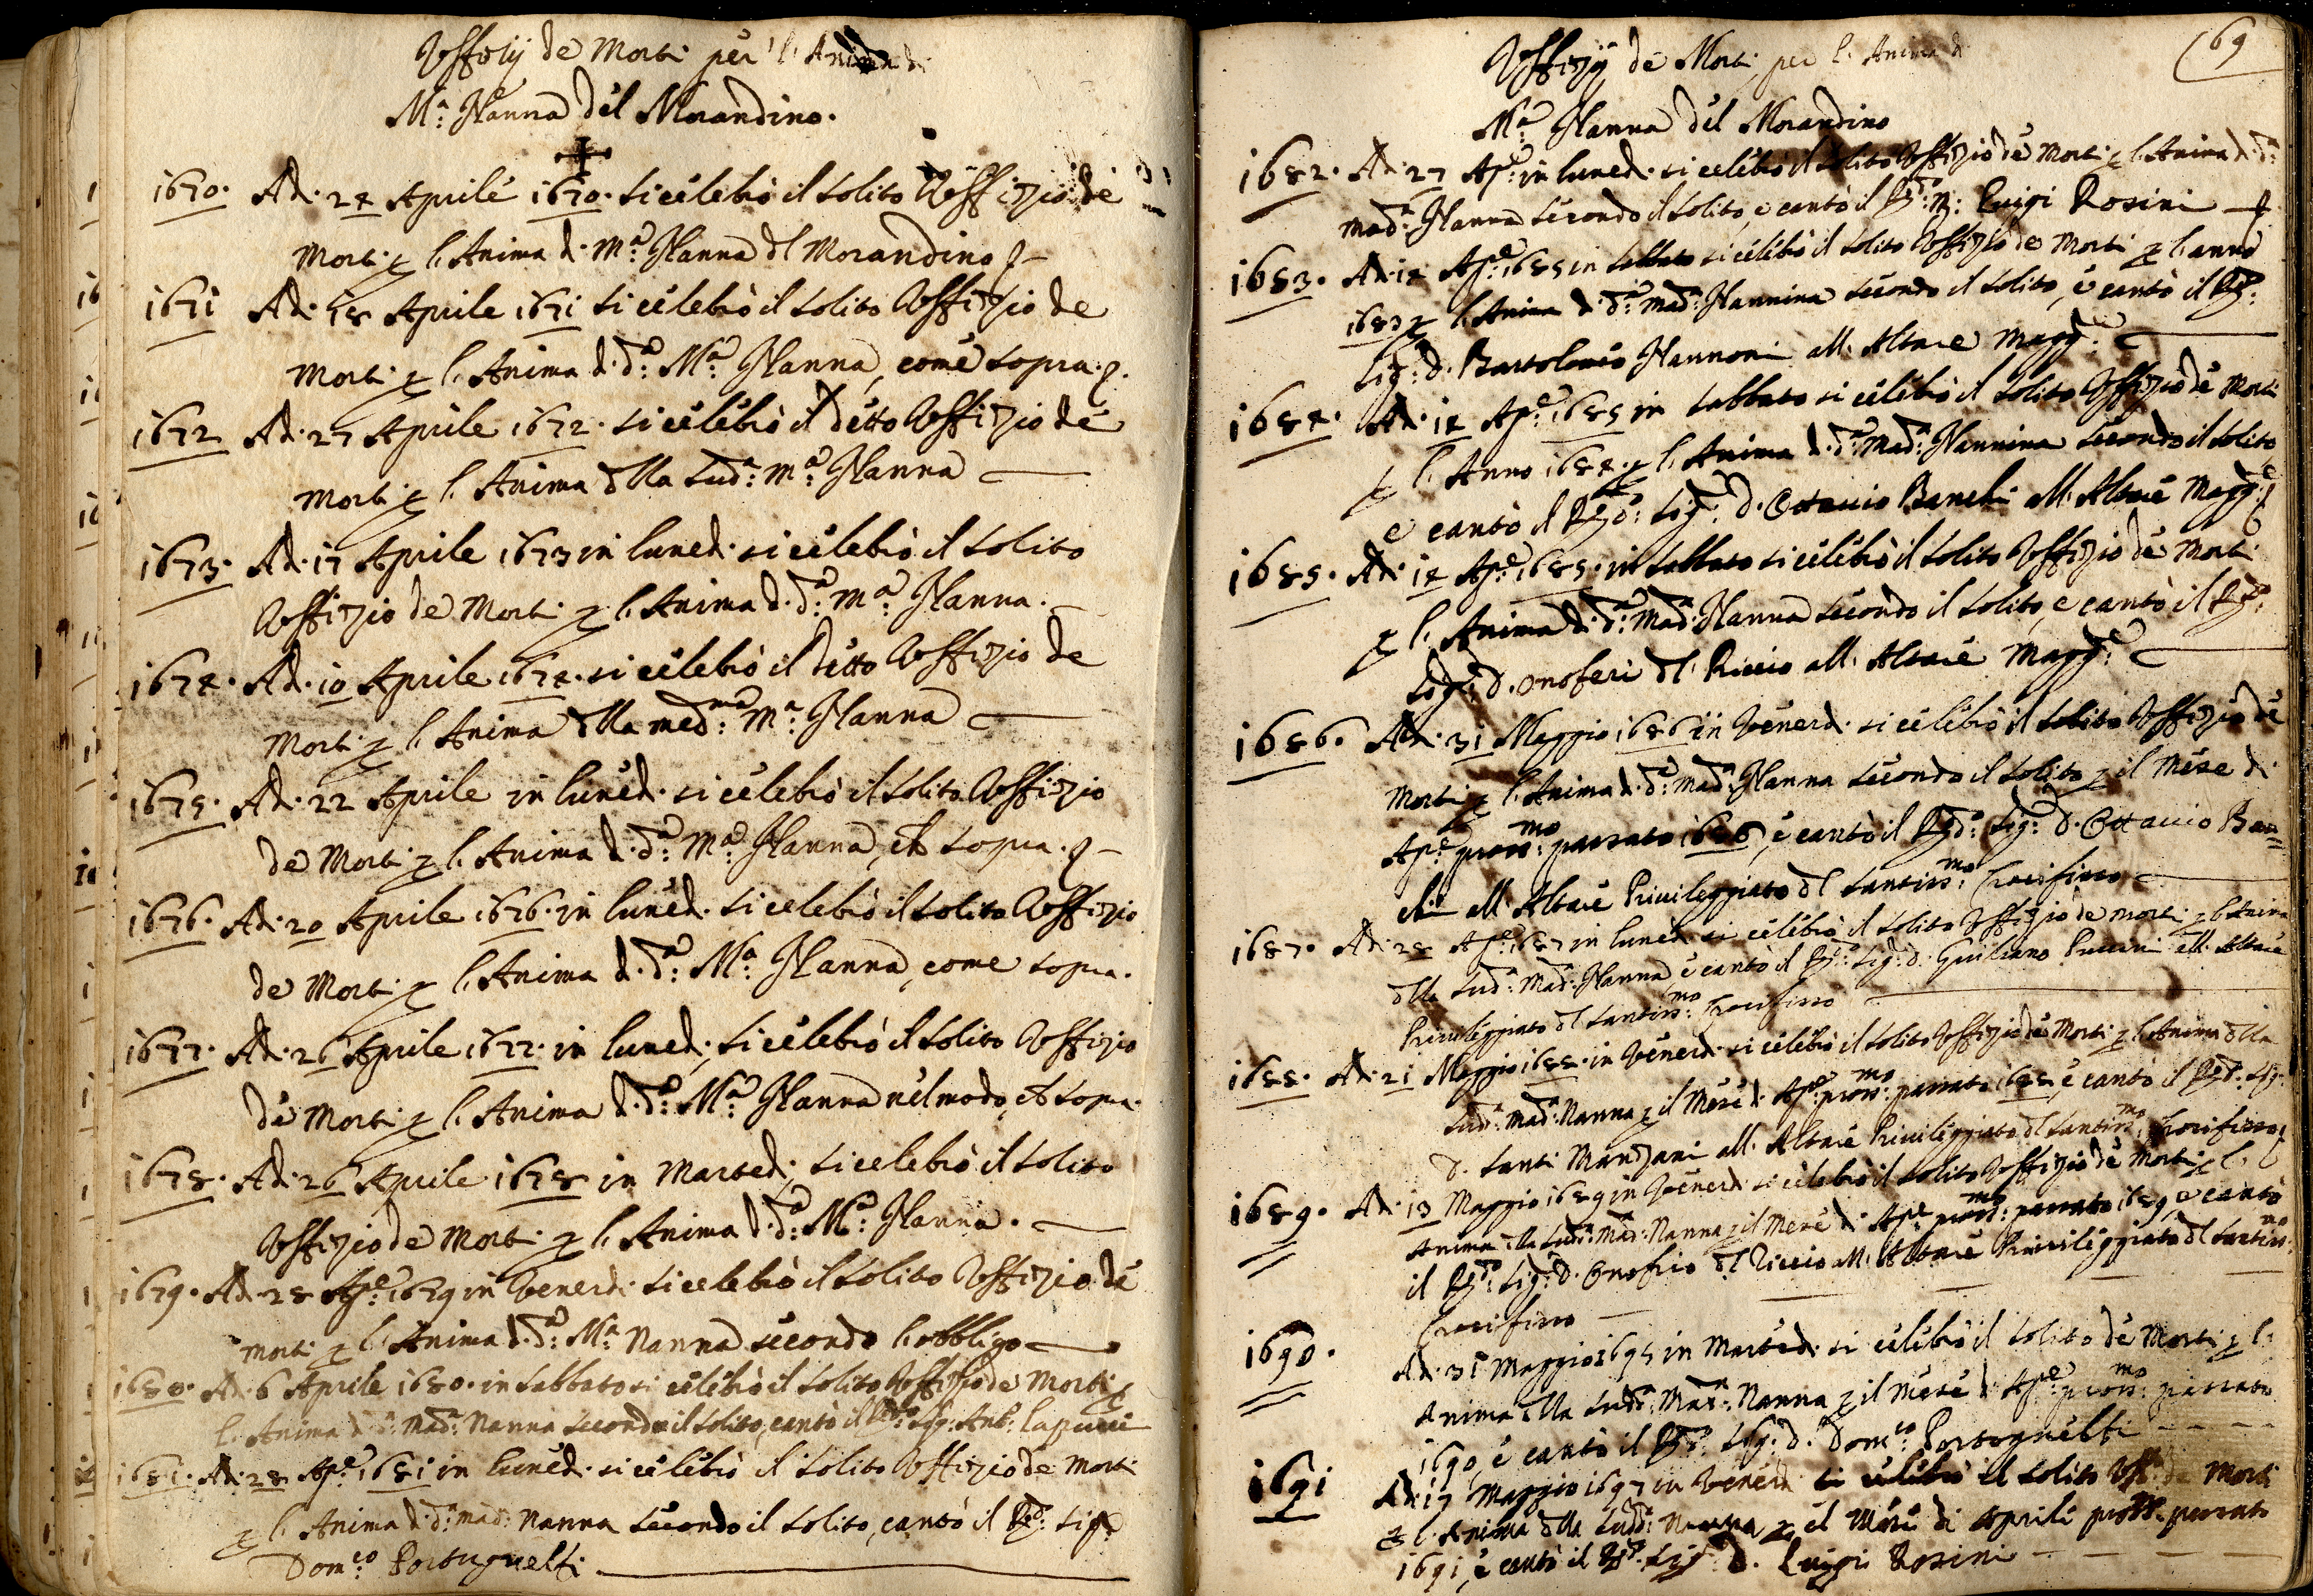 Uffizij de Morti per l'Anima di
Mª: Nanna del Morandino.
1670. Ad. 24 Aprile 1670. si celebrò il solito Uffizio de
Morti p l'Anima di Mª: Nanna dl Morandino
1671 Ad. 18 Aprile 1671 si celebrò il solito Uffizio de
Morti p l'Anima d. dª: Mª: Nanna, come sopra.
1672 Ad. 27 Aprile 1672. si celebrò il detto Uffizio de
Morti p l'Anima dlla sudª: Mª: Nanna
1673. Ad. 17 Aprile 1673 in luned. si celebrò il solito
Uffizio de Morti p l'Anima d. dª: Mª: Nanna.
1674. Ad. 10 Aprile 1674. si celebrò il detto Uffizio de
Morti p l'Anima dlla medma: Mª: Nanna
1675. Ad. 22 Aprile in luned. si celebrò il solito Uffizio
de Morti p l'Anima d. dª: Mª: Nanna, sopra.
1676. Ad. 20 Aprile 1676. in luned. si celebrò il solito Uffizio
de Morti p l'Anima d. dª: Mª: Nanna, come sopra.
1677. Ad. 26 Aprile 1677. in luned. si celebrò il solito Uffizio
de Morti p l'Anima d. dª: Mª: Nanna nel modo, sopra.
1678. Ad. 26 Aprile 1678 in Martedi, si celebrò il solito
Uffizio de Morti p l'Anima d. dª: Mª: Nanna.
1679. Ad. 28 Apᵉ: 1679 in Venerdi si celebrò il solito Uffizio de
Morti p l'Anima d. dª: Mª Nanna secondo l'obbligo
1680. Ad. 6 Aprile 1680. in sabbato si celebrò il solito Uffizio de Morti p
l'Anima d. dª: Madª: Nanna secondo il solito, cantò il Sig: Ant:
1681. Ad. 28 Apᵉ: 1681 in luned. si celebrò il solito Uffizio de Morti
p l'Anima d. dª: Madª: Nanna secondo il solito, cantò il Rdº: Sigʳ
Domᶜᵒ: Portughelli
69
Uffizij de Morti per l'Anima di
Mª: Nanna del Morandino
1682. Ad. 27 Apᵉ: in luned. si celebrò il solito Uffizio de Morti p l'Anima d. dª:
Madª: Nanna secondo il solito, e cantò il Luigi Rosini
1683. Ad. 14 Apᵉ: 1685 in sabbato si celebrò il solito Uffizio de Morti p l'anno
1683 p l'Anima d. dª: Madª: Nannina secondo il solito, e cantò il Rdº:
Sig: D. Bartolomeo Nannoni all'Altare Maggᵉ:
1684. Ad. 14 Apᵉ: 1685 in sabbato si celebrò il solito Uffizio de Morti
p l'Anno 1684. p l'Anima d. dª: Madª: Nannina secondo il solito
e cantò il Rdº: Sig: D. Ottavio Banchi all'Altare Maggᵉ:
1685. Ad. 14 Apᵉ: 1685. in sabbato si celebrò il solito Uffizio de Morti
p l'Anima d. dª: Madª: Nanna secondo il solito, e cantò il Rdº:
Sig: D. Onoferi dl Riccio all'Altare Maggᵉ:
1686. Ad. 31 Maggio 1686 in Venerd. si celebrò il solito Uffizio de
Morti p l'Anima d. dª: Madª: Nanna secondo il solito p il Mese di
Apᵉ: prossmo: passato 1686, e cantò il Rdº: Sig: D. Ottavio Ban=
chi all'Altare Privileggiato dl Santissmo: Crocifisso
1687. Ad. 28 Apᵉ: 1687 in luned. si celebrò il solito Uffizio de Morti p l'Anima
dlla sudª: Madª: Nanna, e cantò il Rdº: Sig: D. Giuliano Puccini all'Altare
Privileggiato dl Santissmo: Crocifisso
1688. Ad. 21 Maggio 1688. in Venerd. si celebrò il solito Uffizio de Morti p l'Anima dlla
sudª: Madª: Nanna p il Mese d. Apᵉ: prossmo: passato 1688, e cantò il Rdº: Sig:
D. Santi Manzani all'Altare Privileggiato dl Santissmo: Crocifisso
1689. Ad. 13 Maggio 1689 in Venerd. si celebrò il solito Uffizio de Morti p l'
Anima dlla sudª: Madª: Nanna p il Mese di Apᵉ: prossmo: passato 1689, e cantò
il Rdº: Sig: D. Onofrio dl Riccio all'Altare Privileggiato dl Santissmo:
Crocifisso
1690. Ad. 31 Maggio 1695 in Marted. si celebrò il solito de Morti p l'
Anima dlla sudª: Madª: Nanna p il Mese d. Apᵉ: prossmo: passato
1690, e cantò il Rdº: Sig: D. Domᶜᵒ: Portughelli
1691 Ad. 17 Maggio 1697 in Venerd. si celebrò il solito Uffº de Morti
p l'Anima dlla sudª: Nanna p il Mese di Aprile pross: passato
1691, e cantò il Rdº: Sigʳ D. Luigi Rosini